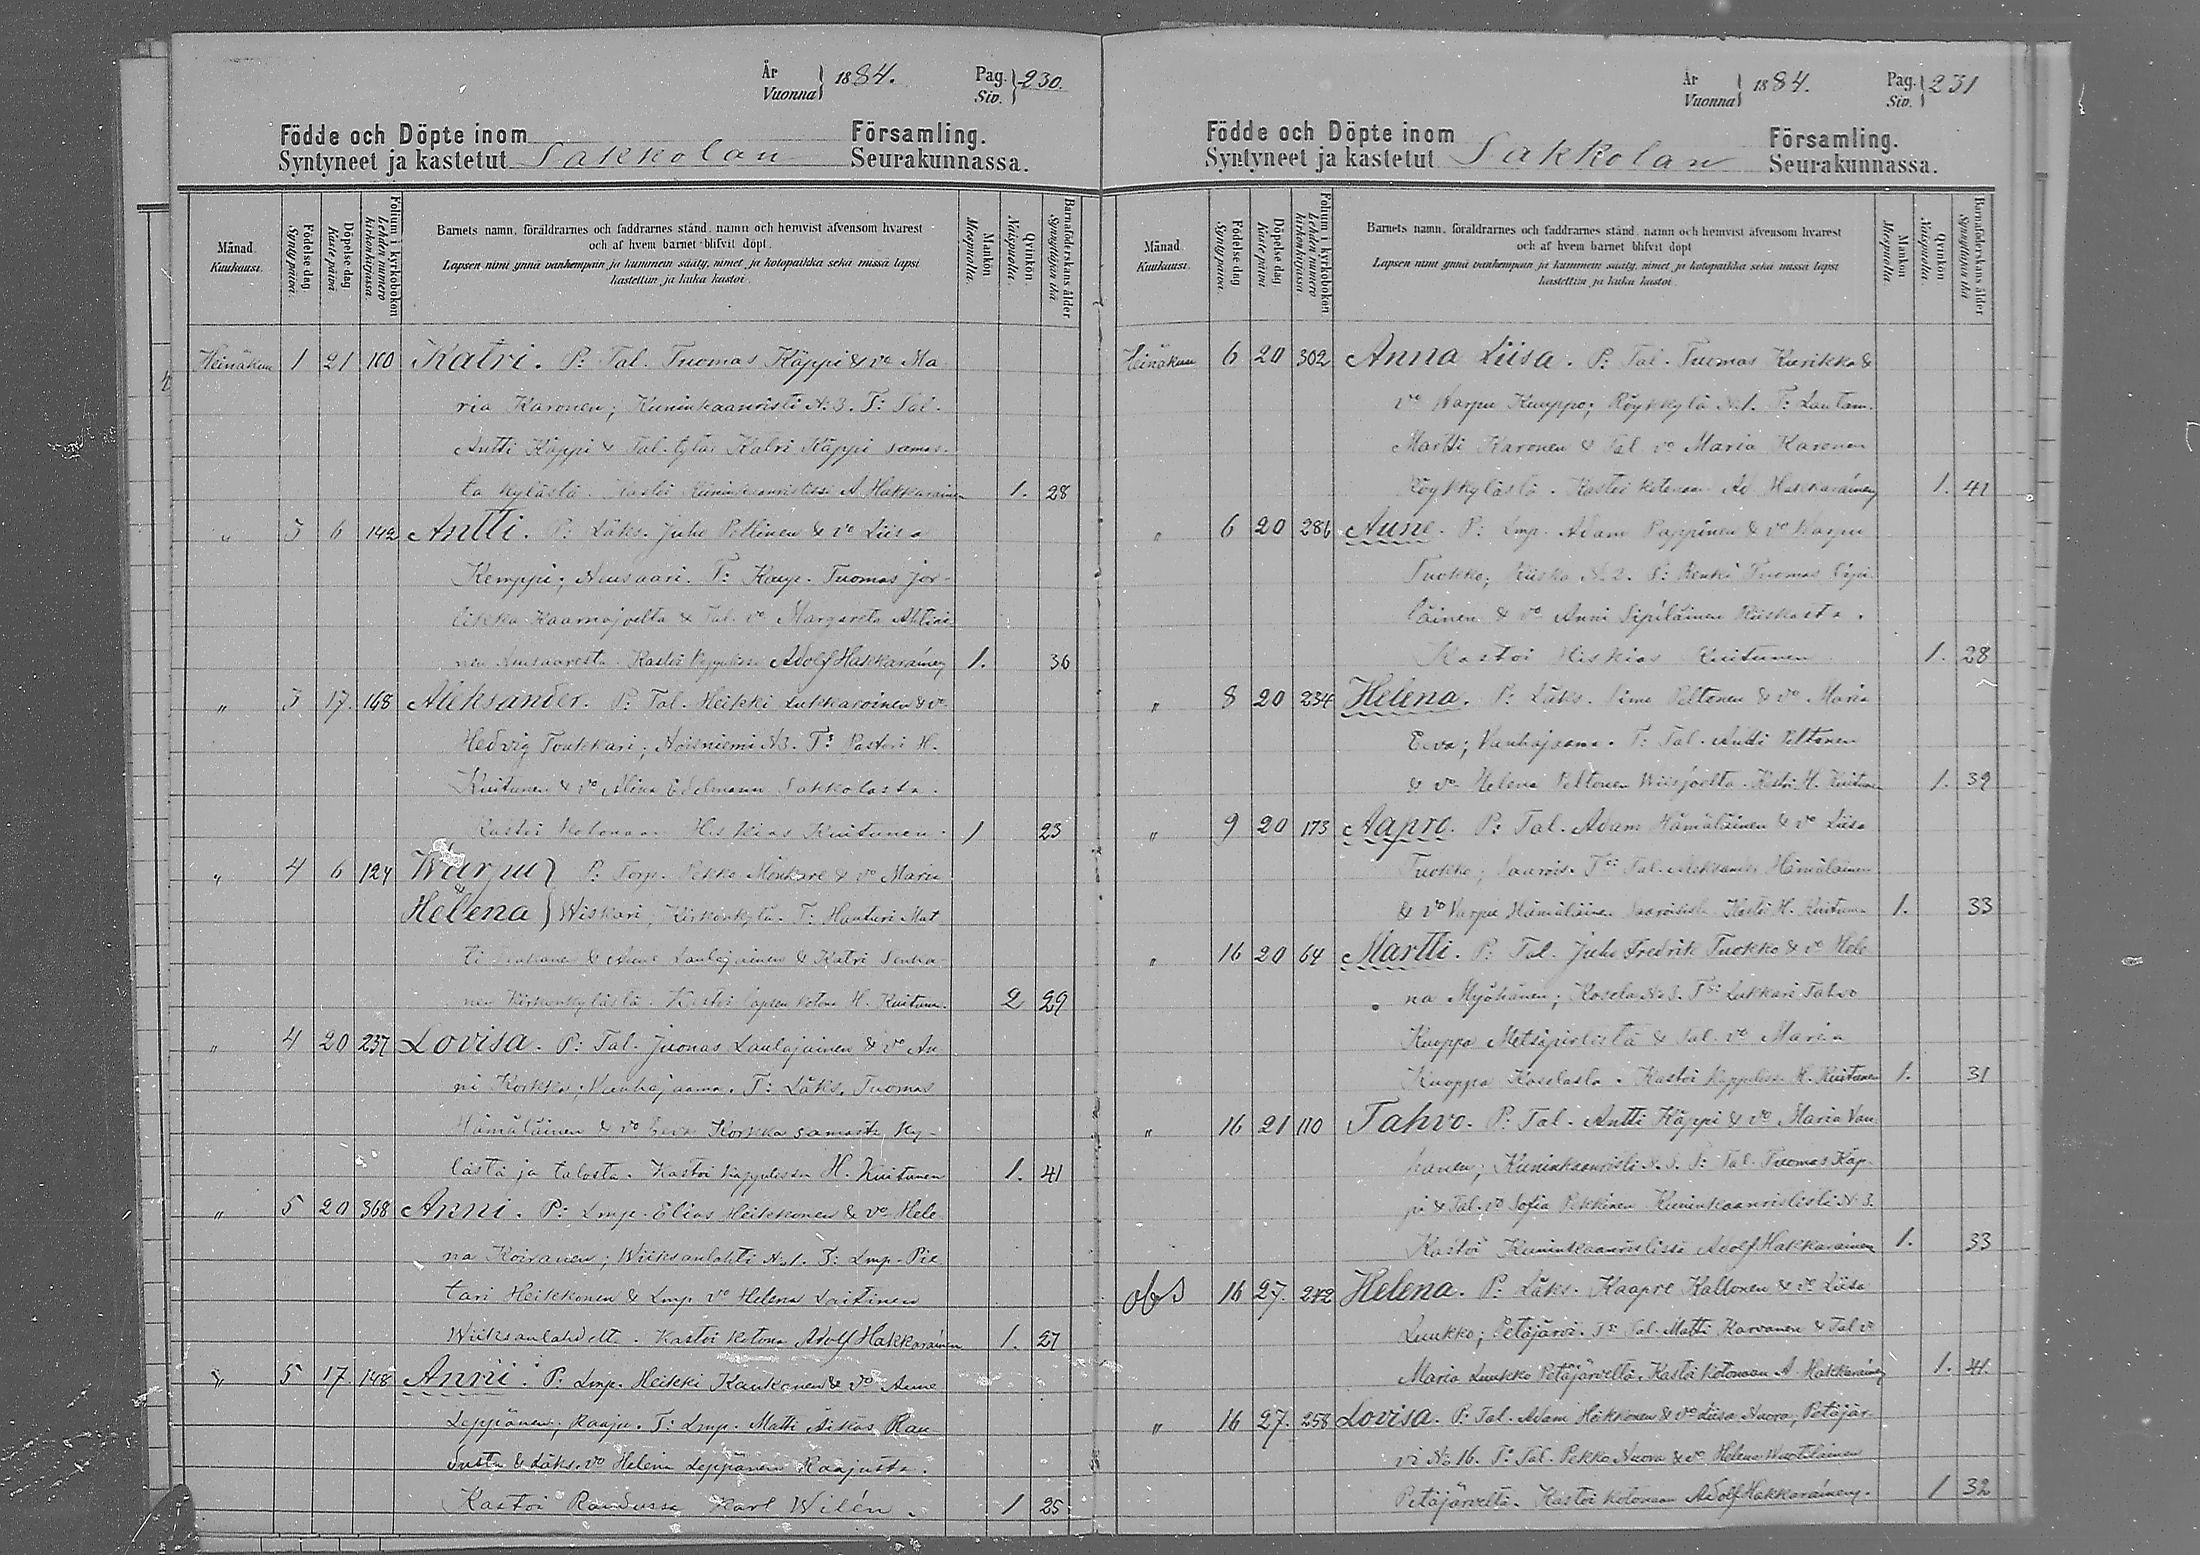 År
Vuonna } 1884. Pag.
Siv. } 230.
Födde och Döpte inom Församling.
Syntyneet ja kastetut Sakkolan Seurakunnassa.
Månad.
Kuukausi.
Födelsedag
Syntypäivä.
Döpelsedag
Kastepäivä
Folium i kyrkoboken
Lehden numero kirkonkirjassa
Barnets namn, föräldrarnes och faddrarnes stånd, namn och hemvist äfvensom hvarest
och af hvem barnet blifvit döpt.
Lapsen nimi ynnä vanhempain ja kummein sääty, nimet ja kotopaikka sekä missä lapsi
kastettiin ja kuka kastoi.
Mankön
Miespuolia.
Qvinkön.
Naispuolia.
Barnaföderskans ålder
Synnyttäjän ikä
Heinäkuu 1 21 100 Katri. P: Tal. Tuomas Käppi & vo Ma
ria Karonen; Kuninkaanristi N:3. T: Tal.
Antti Käppi & Tal. tytär Katri Käppi samas-
ta kylästä. Kastoi Kuninkaanristissä A. Hakkarainen 1. 28
" 3 6 142 Antti. P: Läks. Juho Pellinen & vo Liisa
Kemppi; Ausaari. T: Kaup. Tuomas Jor-
likka Haamajoelta & Tal. vo Margareta Ahtiai
nen Ausaaresta. Kastoi Kappelissa Adolf Hakkarainen 1. 36
" 3 17. 168 Aleksander. P: Tal. Heikki Lukkaroinen & vo
Hedvig Toukkari; Noisniemi N3. T: Pastori H.
Kuitunen & vo Alina Edelmann Sakkolasta.
Kastoi kotonaan Hiskias Kuitunen. 1 23
" 4 6 124 Warpu } P: Torp. Pekko Mönkäre & vo Maria
&
Helena } Wiskari; Kirkonkylä. T: Hanturi Mat
ti & Anni Laulajainen & Katri
nen Kirkonkylästä. Kastoi lapsen kotona H. Kuitunen. 2 29
" 4 20 237 Lovisa. P: Tal. Juonas Laulajainen & vo An
ni Korkka; Vanhajaama. T: Läks. Tuomas
Hämäläinen & vo Eeva Korkka samasta ky-
lästä ja talosta. Kastoi Kappelissa H. Kuitunen 1. 41
" 5 20 368 Anni. P: Lmp. Elias Heikkonen & vo Hele
na Koiranen; Wiiksanlahti No1. T: Lmp. Pie
tari Heikkonen & Lmp. vo Helena Loitinen
Wiiksanlahdelta. Kastoi kotona Adolf Hakkarainen 1. 27
" 5 17. 148 Anni. P: Lmp. Heikki Kaukonen & vo Anne
Leppänen; Raaju. T: Lmp. Matti Äikäs Rau
dusta & Läks. vo Helena Leppänen Raajusta.
Kastoi Raudussa Karl Wilén. 1 25
År
Vuonna } 1884. Pag.
Siv. } 231
Födde och Döpte inom Församling.
Syntyneet ja kastetut Sakkolan Seurakunnassa.
Månad.
Kuukausi.
Födelsedag
Syntypäivä.
Döpelsedag
Kastepäivä
Folium i kyrkoboken
Lehden numero kirkonkirjassa
Barnets namn, föräldrarnes och faddrarnes stånd, namn och hemvist äfvensom hvarest
och af hvem barnet blifvit döpt
Lapsen nimi ynnä vanhempain ja kummein sääty, nimet ja kotopaikka sekä missä lapsi
kastettiin ja kuka kastoi.
Mankön
Miespuolia
Qvinkön
Naispuolia.
Barnaföderskans ålder
Synnyttäjän ikä
Heinäkuu 6 20 302 Anna Liisa. P: Tal. Tuomas Kurikka &
vo Warpu Kuuppo; Röykkylä N:1. T: Lautam.
Martti Karonen & Tal. vo Maria Karonen
Röykkylästä. Kastoi kotonaan Ad. Hakkarainen 1. 41
" 6 20 286 Aune. P: Lmp. Adam Pappinen & vo Warpu
Tuokko; Kiiska N:2. T: Renki Tuomas Sipi
läinen & vo Anni Sipiläinen Kiiskasta.
Kastoi Hiskias Kuitunen 1. 28
" 8 20 234 Helena. P: Läks. Simo Peltonen & vo Maria
Eeva; Vanhajaama. T: Tal. Antti Peltonen
& vo Helena Peltonen Wiisjoelta. Kastoi H. Kuitunen 1. 39
" 9 20 173 Aapro. P: Tal. Adam Hämäläinen & vo Liisa
Tuokko; Saarois. T: Tal. Aleksander Hämäläinen
& vo Varpu Hämäläinen Kastoi H. Kuitunen 1. 33
" 16 20 64 Martti. P: Tal. Juho Fredrik Tuokko & vo Hele
na Myöhänen; Kosela No3. T: Lukkari Tahvo
Kuoppa Metsäpirtistä & Tal. vo Maria
Kuoppa Koselasta. Kastoi Kappelissa H. Kuitunen 1. 31
" 16 21 110 Tahvo. P: Tal. Antti Käppi & vo Maria Van
hanen; Kuninkaanristi N.3. T: Tal. Tuomas Käp-
pi & Tal. vo Sofia Pekkinen Kuninkaanrististä N:3.
Kastoi Kuninkaanristissä Adolf Hakkarainen 1. 33
obs 16 27. 272 Helena. P: Läks. Kaapre Kallonen & vo Liisa
Luukko; Petäjärvi. T: Tal. Matti Karvanen & Tal v
Maria Luukko Petäjärveltä. Kastoi kotonaan A. Hakkarainen 1. 41.
" 16 27. 258 Lovisa. P: Tal. Adam Häkkönen & vo Liisa Nuora; Petäjär-
vi No 16. T: Tal. Pekko Nuora & vo Helena Wuotilainen
Petäjärveltä. Kastoi kotonaan Adolf Hakkarainen. 1 32